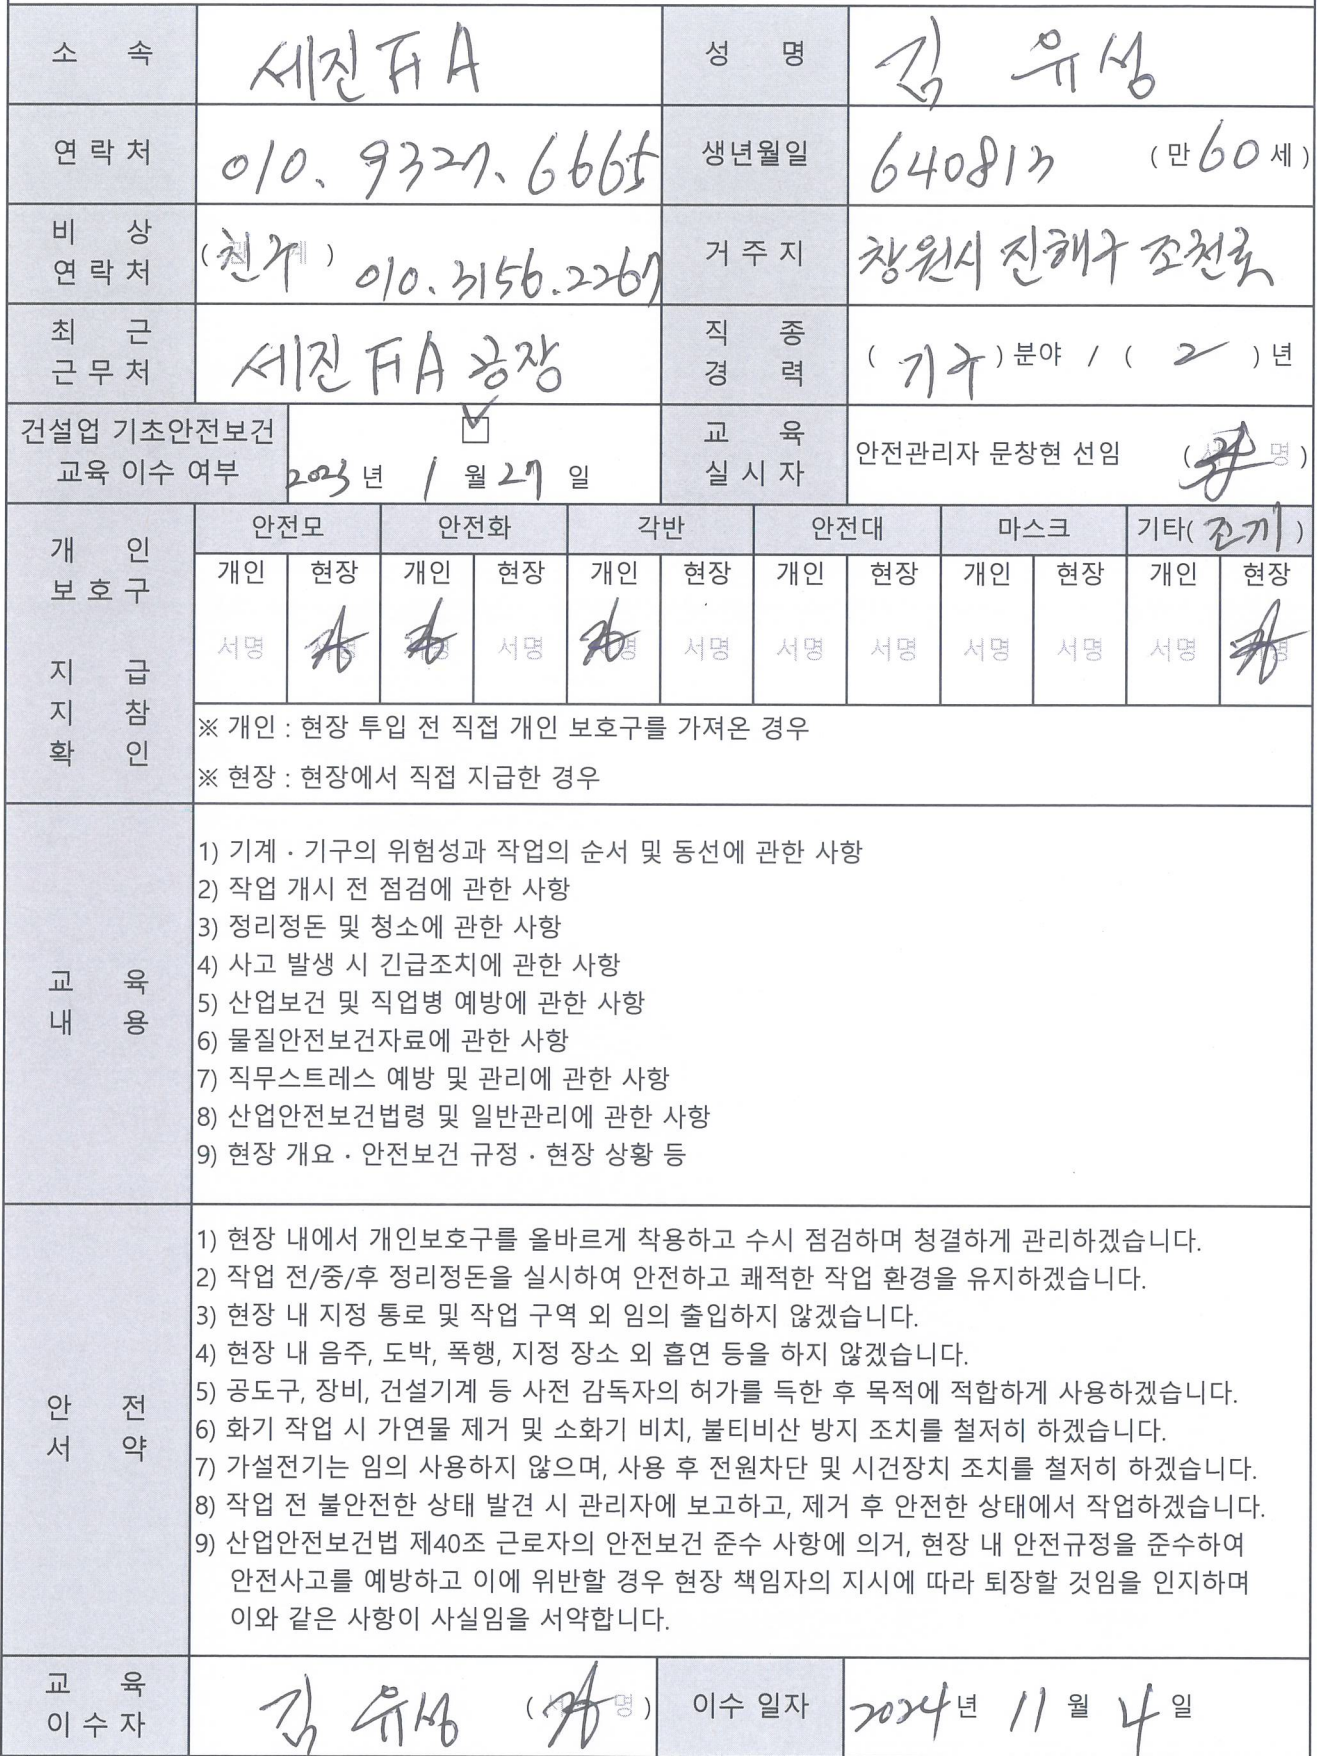 소 속 세진 FA 성 명 김 유성
연락처 010. 9327. 6665 생년월일 640813 (만 60 세)
비 상
연락처 (친구) 010. 3156. 2267 거주지 창원시 진해구 조천로
최 근
근무처 세진 FA 공장 직 종
경 력 (기구) 분야 / (2) 년
건설업 기초안전보건
교육 이수 여부 2023 년 1 월 27 일 교 육
실시자 안전관리자 문창현 선임 (서명)
개 인
보호구
지 급
지 참
확 인
안전모 안전화 각반 안전대 마스크 기타(조끼)
개인 현장 개인 현장 개인 현장 개인 현장 개인 현장 개인 현장
서명 서명 서명 서명 서명 서명 서명 서명 서명 서명 서명 서명
※ 개인 : 현장 투입 전 직접 개인 보호구를 가져온 경우
※ 현장 : 현장에서 직접 지급한 경우
교 육
내 용
1) 기계 · 기구의 위험성과 작업의 순서 및 동선에 관한 사항
2) 작업 개시 전 점검에 관한 사항
3) 정리정돈 및 청소에 관한 사항
4) 사고 발생 시 긴급조치에 관한 사항
5) 산업보건 및 직업병 예방에 관한 사항
6) 물질안전보건자료에 관한 사항
7) 직무스트레스 예방 및 관리에 관한 사항
8) 산업안전보건법령 및 일반관리에 관한 사항
9) 현장 개요 · 안전보건 규정 · 현장 상황 등
안 전
서 약
1) 현장 내에서 개인보호구를 올바르게 착용하고 수시 점검하며 청결하게 관리하겠습니다.
2) 작업 전/중/후 정리정돈을 실시하여 안전하고 쾌적한 작업 환경을 유지하겠습니다.
3) 현장 내 지정 통로 및 작업 구역 외 임의 출입하지 않겠습니다.
4) 현장 내 음주, 도박, 폭행, 지정 장소 외 흡연 등을 하지 않겠습니다.
5) 공도구, 장비, 건설기계 등 사전 감독자의 허가를 득한 후 목적에 적합하게 사용하겠습니다.
6) 화기 작업 시 가연물 제거 및 소화기 비치, 불티비산 방지 조치를 철저히 하겠습니다.
7) 가설전기는 임의 사용하지 않으며, 사용 후 전원차단 및 시건장치 조치를 철저히 하겠습니다.
8) 작업 전 불안전한 상태 발견 시 관리자에 보고하고, 제거 후 안전한 상태에서 작업하겠습니다.
9) 산업안전보건법 제40조 근로자의 안전보건 준수 사항에 의거, 현장 내 안전규정을 준수하여
안전사고를 예방하고 이에 위반할 경우 현장 책임자의 지시에 따라 퇴장할 것임을 인지하며
이와 같은 사항이 사실임을 서약합니다.
교 육
이수자 김 유성 (서명) 이수 일자 2024 년 11 월 4 일